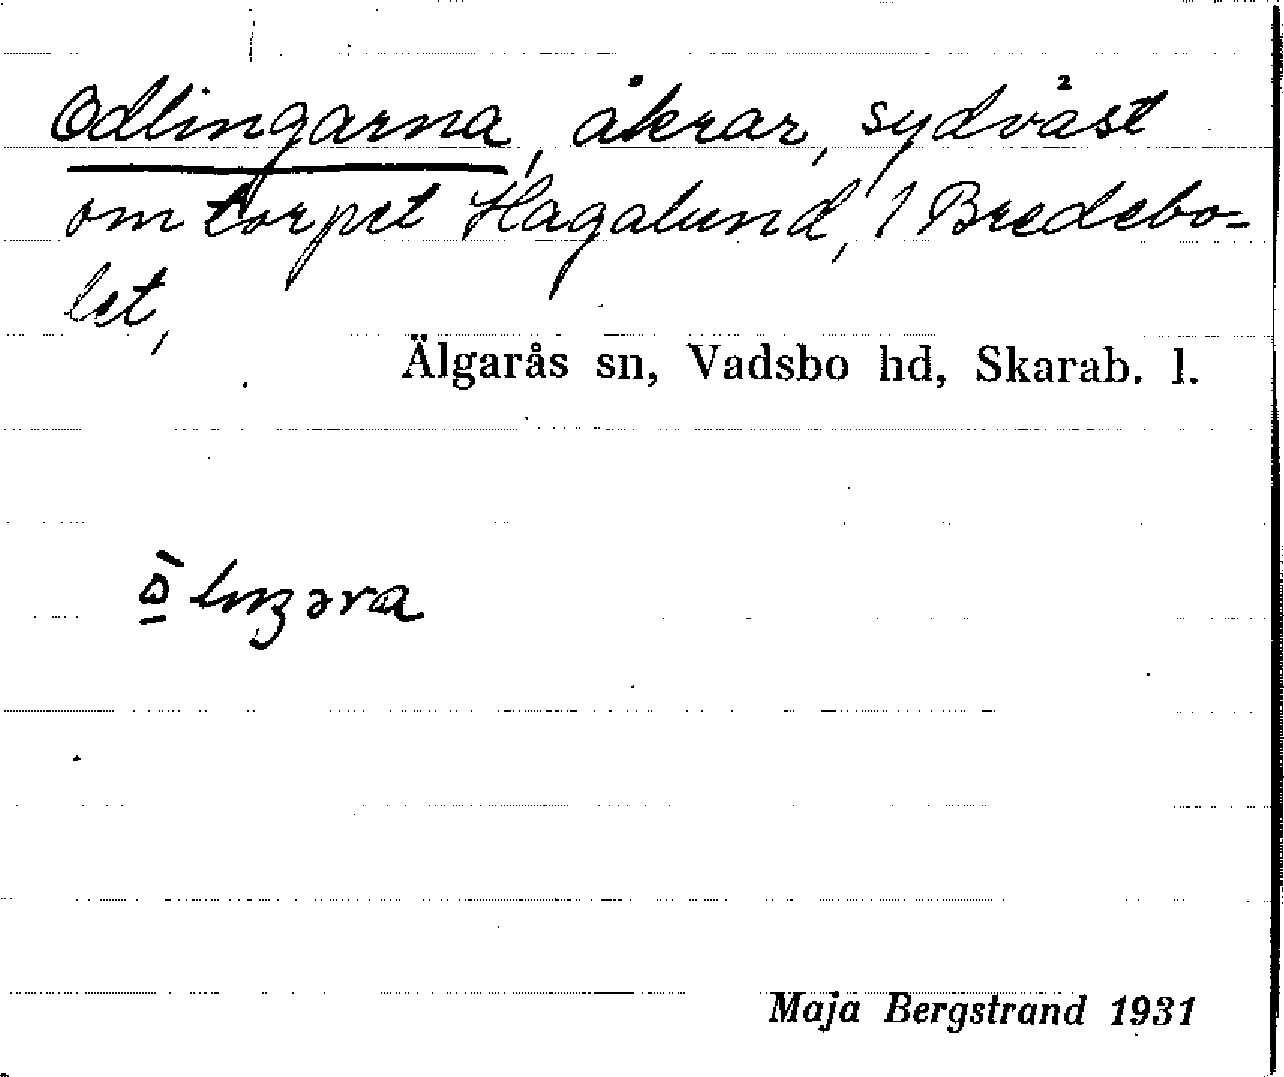 Odlingarna, åkrar, sydväst
om torpet Hagalund, 1 Bredebo-
let,
Älgarås sn, Vadsbo hd, Skarab. l.
Maja Bergstrand 1931